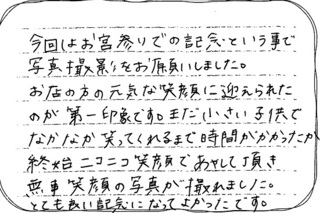 今回はお宮参りでの記念という事で
写真撮影をお願いしました。
お店の方の元気な笑顔に迎えられた
のが第一印象です。まだ小さい子供で
なかなか笑ってくれるまで時間がかかったが
終始ニコニコ笑顔であやして頂き
無事笑顔の写真が撮れました。
とても良い記念になってよかったです。